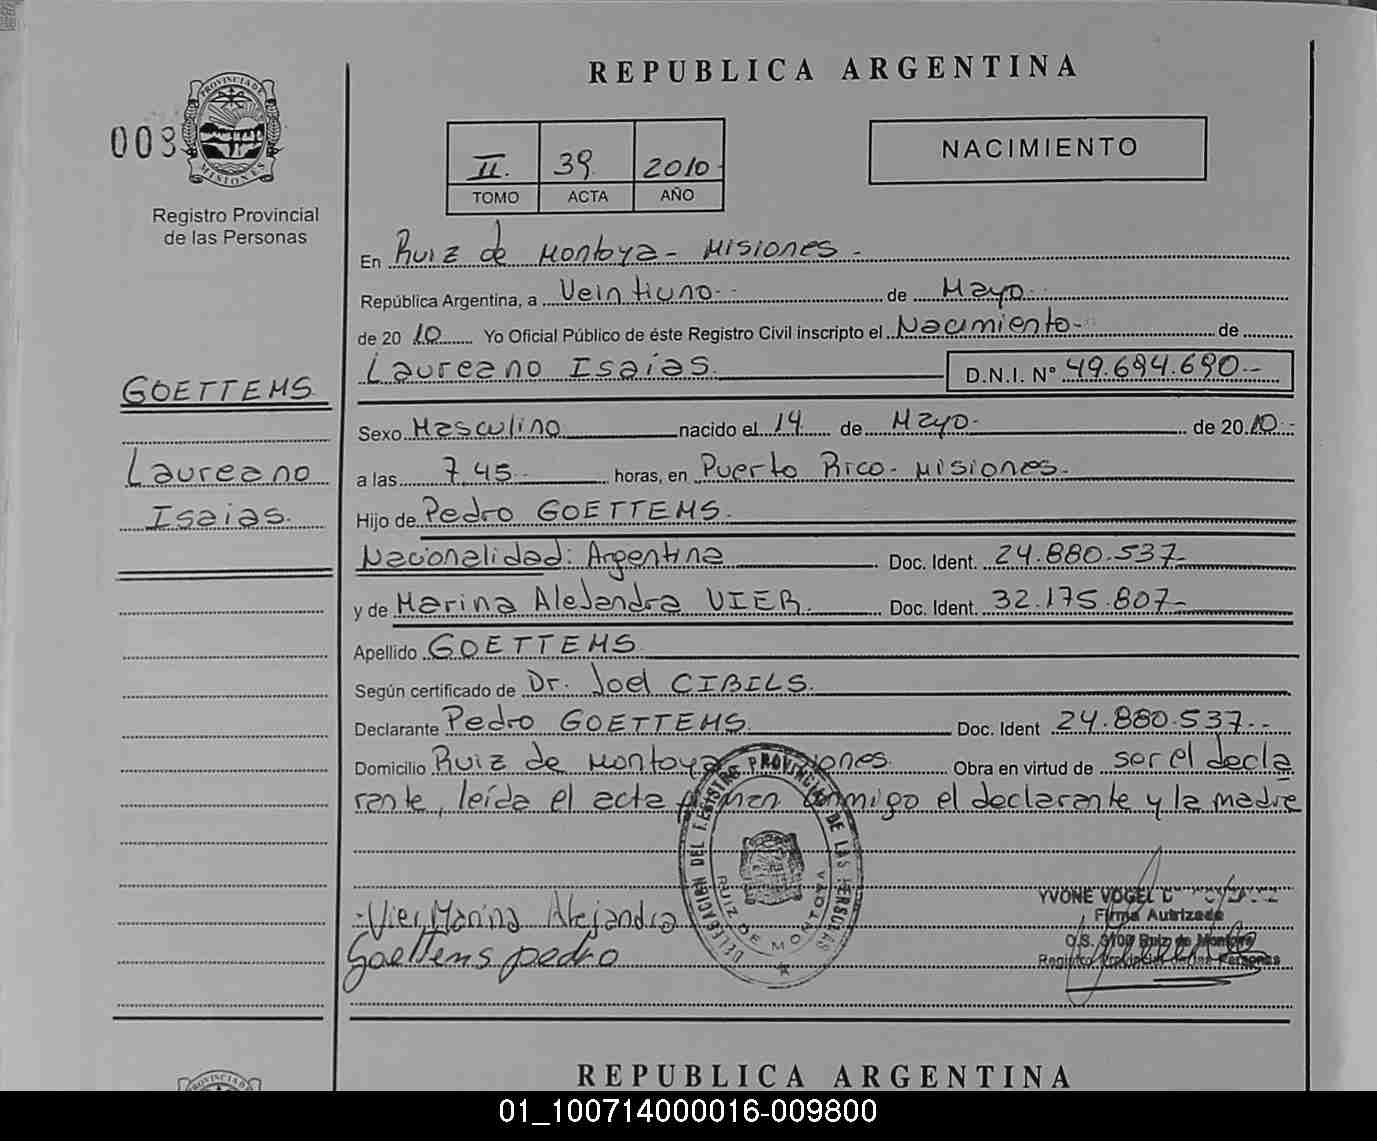 REPUBLICA ARGENTINA
003
PROVINCIA DE
MISIONES
Registro Provincial
de las Personas
II. 39 2010
TOMO ACTA AÑO
NACIMIENTO
En Ruiz de Montoya - Misiones -
República Argentina, a Veintiuno - de Mayo
de 20 10 Yo Oficial Público de éste Registro Civil inscripto el Nacimiento - de
Laureano Isaías. D.N.I. N° 49.694.690 -
GOETTEMS
Laureano
Isaias.
Sexo Masculino nacido el 14 de Mayo - de 20 10 -
a las 7,45 - horas, en Puerto Rico - Misiones -
Hijo de Pedro GOETTEMS.
Nacionalidad: Argentina Doc. Ident. 24.880.537 -
y de Marina Alejandra VIER. Doc. Ident. 32.175.807 -
Apellido GOETTEMS
Según certificado de Dr. Joel CIBILS.
Declarante Pedro GOETTEMS. Doc. Ident 24.880.537 - -
Domicilio Ruiz de Montoya Misiones Obra en virtud de ser el decla
rante, leída el acta firman conmigo el declarante y la madre
DELEGACION DEL REGISTRO PROVINCIAL DE LAS PERSONAS
RUIZ DE MONTOYA
Vier, Marina Alejandra
Goettems pedro
YVONE VOGEL
Firma Autrizada
O.S. 3107 Ruiz de Montoya
Registro Provincial de las Personas
PROVINCIA DE
REPUBLICA ARGENTINA
01_100714000016-009800